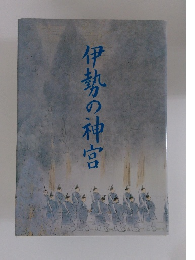 伊勢の神宮